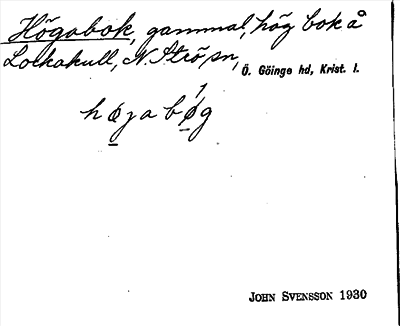 Högabok, gammal, hög bok å
Lockakull, N. Strö sn,
Ö. Göinge hd, Krist. l.
højabøg
JOHN SVENSSON 1930